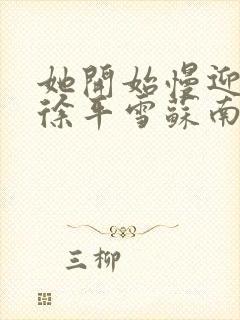 她開始慢迎
徐平雪蘇南
三柳